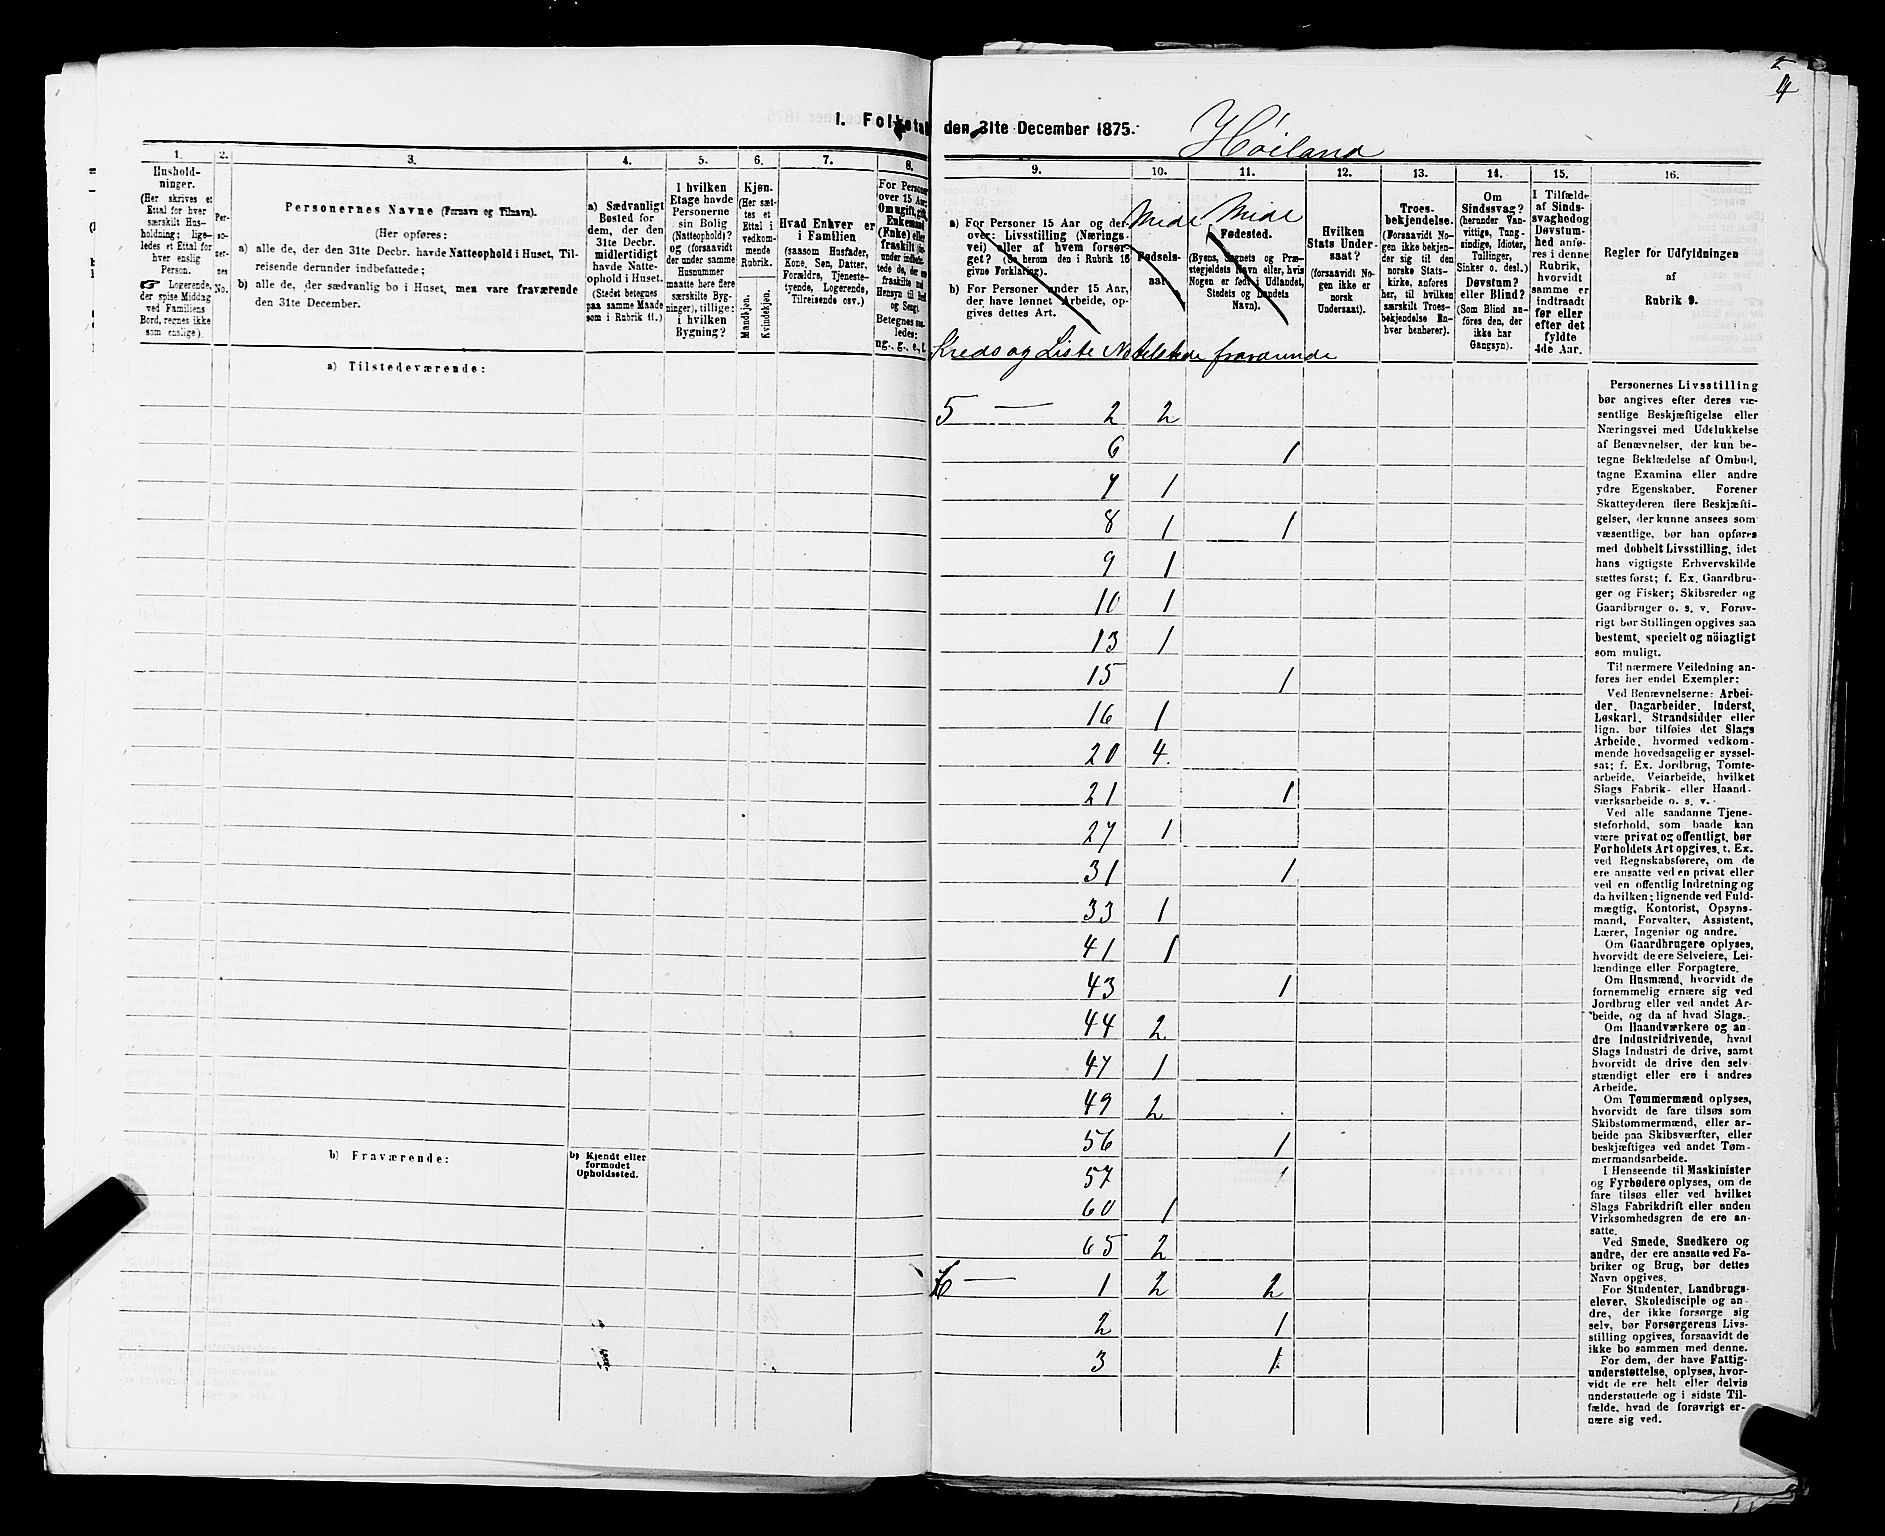 1. Folketal den 31te December 1875.
Høiland
4
1.
2.
3.
4.
5.
6.
7.
8.
9.
10.
11.
12.
13.
14.
15.
16.
Husholdninger.
(Her skrives et
Ettal for hver
særskilt Husholdning;
ligeledes et Ettal for
hver enslig
Person.
☞ Logerende,
der spise Middag
ved Familiens
Bord, regnes ikke
som enslige).
Personernes
No.
Personernes Navne (Fornavn og Tilnavn).
(Her opføres:
a) alle de, der den 31te Decbr. havde Natteophold i Huset, Tilreisende
derunder indbefattede;
b) alle de, der sædvanlig bo i Huset, men vare fraværende
den 31te December.
a) Sædvanligt
Bosted for
dem, der den
31te Decbr.
midlertidigt
havde Natteophold
i Huset.
(Stedet betegnes
paa samme Maade
som i Rubrik 11.)
I hvilken
Etage havde
Personerne
sin Bolig
(Natteophold)?
og (forsaavidt
der under samme
Husnummer
maatte høre flere
særskilte Bygninger),
tillige:
i hvilken
Bygning?
Kjøn.
(Her sættes
et
Ettal i
vedkommende
Rubrik.
Mandkjøn.
Kvindekjøn.
Hvad Enhver er
i Familien
(saasom Husfader,
Kone, Søn, Datter,
Forældre, Tjenestetyende,
Logerende,
Tilreisende osv.)
For Personer
over 15 Aar:
Om ugift, gift,
Enkemand
(Enke) eller
fraskilt
Betegnes saaledes:
ug., g., e., f.
a) For Personer 15 Aar og derover:
Livsstilling (Næringsvei)
eller af hvem forsørget?
(Se herom den i Rubrik 16
givne Forklaring).
b) For Personer under 15 Aar,
der have lønnet Arbeide, opgives
dettes Art.
Mide
Fødselsaar.
Mide
Fødested.
(Byens, Sognets og Præstegjeldets
Navn eller, hvis
Nogen er født i Udlandet,
Stedets og Landets
Navn).
Hvilken
Stats Undersaat?
(forsaavidt Nogen
ikke er
norsk
Undersaat).
Troesbekjendelse.
(Forsaavidt Nogen
ikke bekjender
sig til den
norske Statskirke,
anføres
her, til hvilken
særskilt Troesbekjendelse
Enhver
henhører).
Om
Sindssvag?
(herunder Vanvittige,
Tungsindige,
Idioter,
Tullinger,
Sinker o. desl.)
Døvstum?
eller Blind?
(Som Blind anføres
den, der
ikke har
Gangsyn).
I Tilfælde
af Sindssvaghed
og
Døvstumhed
anføres
i denne
Rubrik,
hvorvidt
samme er
indtraadt
før eller
efter det
fyldte
4de Aar.
Regler for Udfyldningen
af
Rubrik 9.
Kreds og Liste No tilstede fraværende
a) Tilstedeværende:
5 — 2 2
6 1
7 1
8 1 1
9 1
10 1
13 1
15 1
16 1
20 4
21 1
27 1
31 1
33 1
41 1
43 1
44 2
47 1
49 2
56 1
57 1
60 1
65 2
6 — 1 2 2
2 1
3 1
b) Fraværende:
b) Kjendt eller
formodet
Opholdssted.
Personernes Livsstilling
bør angives efter deres væsentlige
Beskjæftigelse eller
Næringsvei med Udelukkelse
af Benævnelser, der kun betegne
Beklædelse af Ombud,
tagne Examina eller andre
ydre Egenskaber. Forener
Skatteyderen flere Beskjæftigelser,
der kunne ansees som
væsentlige, bør han opføres
med dobbelt Livsstilling, idet
hans vigtigste Erhvervskilde
sættes først; f. Ex. Gaardbruger
og Fisker; Skibsreder og
Gaardbruger o. s. v. Forøvrigt
bør Stillingen opgives saa
bestemt, specielt og nöiagtigt
som muligt.
Til nærmere Veiledning anføres
her endel Exempler:
Ved Benævnelserne: Arbeider,
Dagarbeider, Inderst,
Løskarl, Strandsidder eller
lign. bør tilføies det Slags
Arbeide, hvormed vedkommende
hovedsagelig er sysselsat;
f. Ex. Jordbrug, Tomtearbeide,
Veiarbeide, hvilket
Slags Fabrik- eller Haandværksarbeide
o. s. v.
Ved alle saadanne Tjenesteforhold,
som baade kan
være privat og offentligt, bør
Forholdets Art opgives, t. Ex.
ved Regnskabsførere, om de
ere ansatte ved en privat eller
ved en offentlig Indretning og
da hvilken; lignende ved Fuldmægtig,
Kontorist, Opsynsmand,
Forvalter, Assistent,
Lærer, Ingeniør og andre.
Om Gaardbrugere oplyses,
hvorvidt de ere Selveiere, Leilændinge
eller Forpagtere.
Om Husmænd, hvorvidt de
fornemmelig ernære sig ved
Jordbrug eller ved andet Arbeide,
og da af hvad Slags.
Om Haandværkere og andre
Industridrivende, hvad
Slags Industri de drive, samt
hvorvidt de drive den selvstændigt
eller ere i andres
Arbeide.
Om Tømmermænd oplyses,
hvorvidt de fare tilsøs som
Skibstømmermænd, eller arbeide
paa Skibsværfter, eller
beskjæftiges ved andet Tømmermandsarbeide.
I Henseende til Maskinister
og Fyrbødere oplyses, om de
fare tilsøs eller ved hvilket
Slags Fabrikdrift eller anden
Virksomhedsgren de ere ansatte.
Ved Smede, Snedkere og
andre, der ere ansatte ved Fabriker
og Brug, bør dettes
Navn opgives.
For Studenter, Landbrugselever,
Skoledisciple og andre,
der ikke forsørge sig
selv, bør Forsørgerens Livsstilling
opgives, forsaavidt de
ikke bo sammen med denne.
For dem, der have Fattigunderstøttelse,
oplyses, hvorvidt
de ere helt eller delvis
understøttede og i sidste Tilfælde,
hvad de forøvrigt ernære
sig ved.